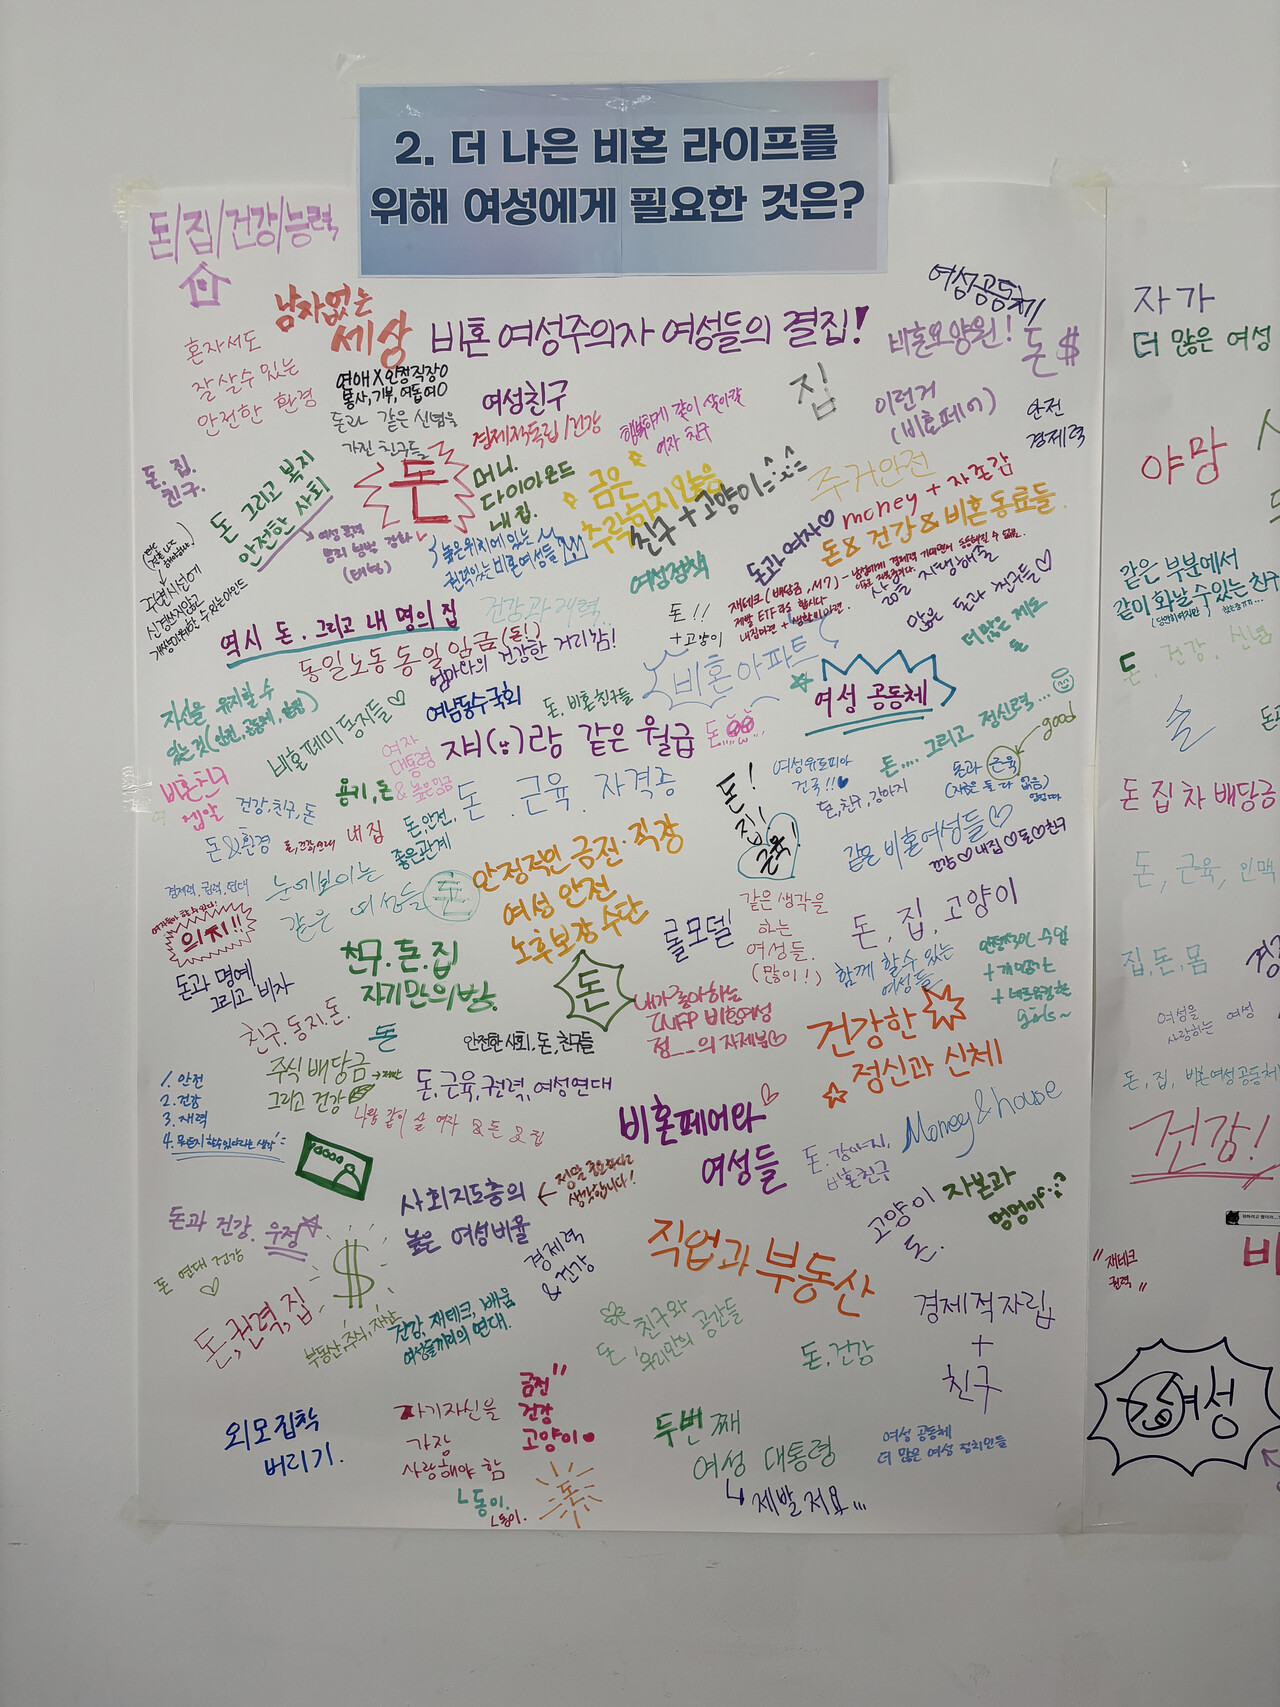 2. 더 나은 비혼 라이프를
위해 여성에게 필요한 것은?
돈/집/건강/능력
남자없는
세상
비혼 여성주의자 여성들의 결집!
여성공동체
비혼요양원!
돈 $
혼자서도
잘 살 수 있는
안전한 환경
연애 X 안정직장 O
봉사, 기부, 여돕여 O
돈과 같은 신념을
가진 친구들
여성친구
경제적독립/건강
행복하게 같이 살아갈
여자 친구
집
이런거
(비혼페어)
안전
경제력
돈. 집.
친구.
돈 그리고 복지
안전한 사회
돈
머니.
다이아몬드
내 집.
금은
추락하지 않음
친구 + 고양이
주거안전
money + 자존감
돈 & 건강 & 비혼 동료들
높은위치에 있는
권력있는 비혼여성들
여성정책
돈과 여자♡
재테크
제발 ETF라도 합시다
내집마련
많은 돈과 친구들♡
더많은 제도
돈
주변시선에
신경쓰지않고
역시 돈. 그리고 내 명의 집
건강과 재력..
돈!!
+고양이
동일노동 동일임금 (돈!)
엄마와의 건강한 거리감!
비혼아파트
여성 공동체
자신을 유지할 수
있는 것
비혼페미 동지들♡
여남동수국회
돈, 비혼친구들
같은 월급
돈
여자
대통령
& 높은임금
용기, 돈
돈. 근육. 자격증
돈!
집!
근육!
여성유토피아
건국!!
돈, 친구, 강아지
돈.... 그리고 정신력...
good
돈과 근육
비혼친구
건강, 친구, 돈
돈 &환경
내 집
돈, 안전,
좋은관계
안정적인 금전·직장
여성 안전
노후보장 수단
같은 비혼여성들♡
건강♡내집♡돈♡친구
경제력, 권력, 연대
의지!!
눈에보이는
같은 여성들
돈
돈과 명예
그리고 비자
친구. 돈. 집
자기만의 방.
돈
롤모델
같은 생각을
하는
여성들.
(많이!)
돈, 집, 고양이
함께 할 수 있는
여성들
안정적인 수입
girls~
친구. 동지. 돈.
돈
안전한 사회, 돈, 친구들
내가 좋아하는
INFP 비혼여성
건강한
정신과 신체
1. 안전
2. 건강
3. 재력
4. 뭐든지 할수있다라는 생각
주식 배당금
그리고 건강
돈, 근육, 권력, 여성연대
나랑 같이 술 여자 & 돈 & 집
비혼페어와
여성들
Money & house
돈. 강아지,
비혼친구
사회지도층의
높은 여성비율
← 정말 중요하다고
생각합니다!
고양이
돈.
자본과
멍멍이
돈과 건강. 우정
돈 연대 건강
♡
$
경제력
& 건강
직업과 부동산
돈, 권력, 집
부동산, 주식, 재산
건강, 재테크, 배움
여성들끼리의 연대.
친구와
돈 우리만의 공간들
돈, 건강
경제적자립
+
친구
외모 집착
버리기.
자기자신을
가장
사랑해야 함
ㄴ동이.
ㄴ동이.
금전"
건강
고양이
돈
두번째
여성 대통령
↳ 제발저요...
여성 공동체
더 많은 여성 정치인들
자가
더 많은 여성
야망
같은 부분에서
같이 화날 수 있는 친구
돈, 건강, 신념
술
돈 집 차 배당금
돈, 근육, 인맥
집, 돈, 몸
여성을
사랑하는 여성
돈, 집, 비혼여성공동체
건강!
"재테크
권력"
여성